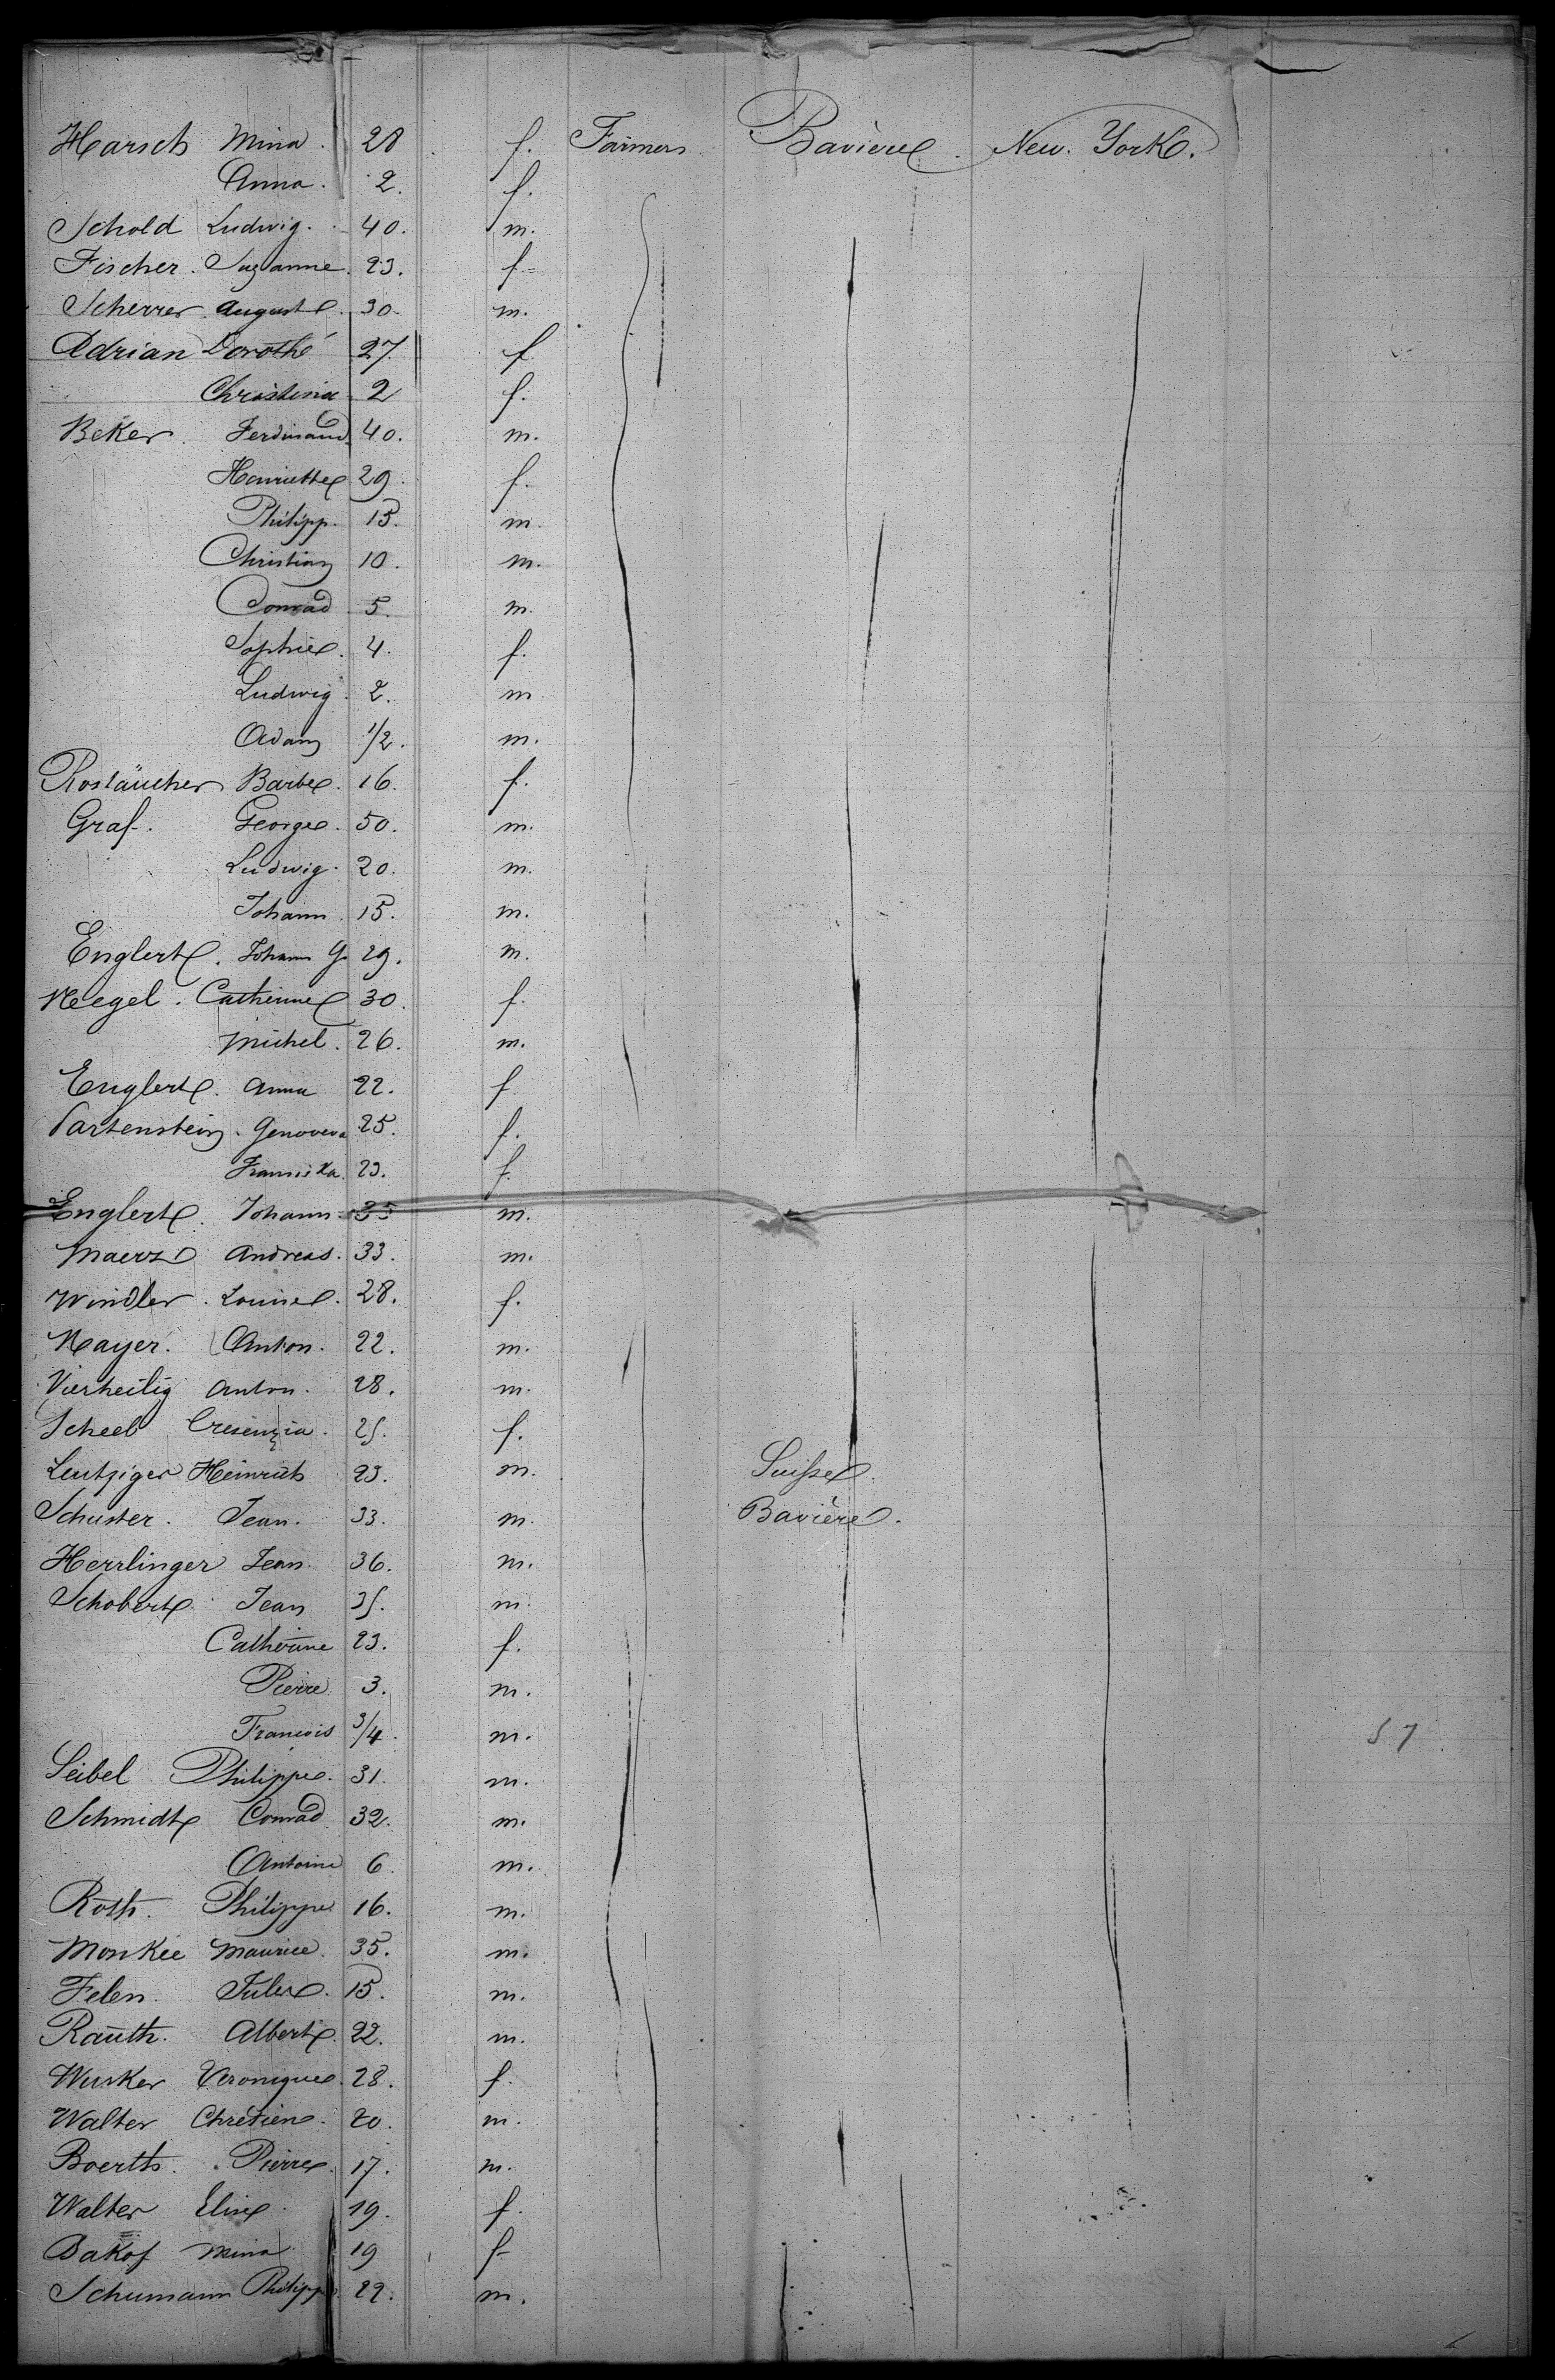 Harsch Mina. 28 f. Farmers Bavière. New. York.
Anna. 2. f.
Schold Ludwig. 40. m.
Fischer. Suzanne. 23. f.
Scherrer. Auguste. 30. m.
Adrian Dorothé 27. f
Christina 2 f.
Beker. Ferdinand 40. m.
Henriette 29. f.
Philipp. 15. m.
Christian 10. m.
Conrad 5. m.
Sophie. 4. f.
Ludwig. 2. m
Adam 1/2. m.
Rostäucher Barbe. 16. f.
Graf. George. 50. m.
Ludwig. 20. m.
Johann. 15. m.
Englert. Johann G. 29. m.
Neegel. Catherine 30. f.
Michel. 26. m.
Englert. Anna 22. f
Partenstein. Genoveva 25. f.
Franciska. 23. f.
Englert. Johann 35 m.
Maerz Andreas. 33. m.
Windler. Louise. 28. f.
Mayer. Anton. 22. m.
Vierheilig Anton. 28. m.
Scheeb Cresenzia. 25. f.
Leutziger Heinrich 23. m. Suisse.
Schuster. Jean. 33. m. Bavière.
Herrlinger Jean. 36. m.
Schobert Jean 35. m
Catherine 23. f.
Pierre 3. m.
Francois 3/4. m. 57
Seibel Philippe. 31. m.
Schmidt Conrad. 32. m.
Antoine 6. m.
Roth. Philippe 16. m.
Monkee Maurice. 35. m.
Felen. Jules. 15. m.
Rauth. Albert. 22. m.
Wusker Veronique. 28. f.
Walter Chrétien. 20. m.
Boerth. Pierre. 17. m.
Walter Elise. 19. f.
Bakof Mina 19 f.
Schumann Philipp 22. m.